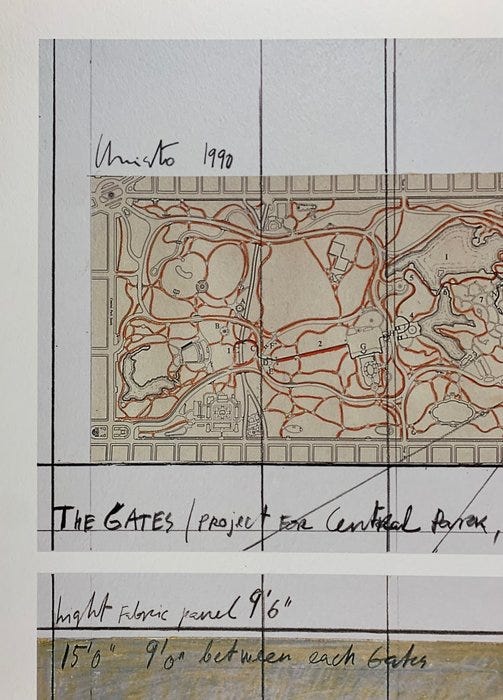 Christo 1990
1
B
1
2
G
4
6
7
THE GATES / PROJECT FOR CENTRAL PARK,
hight FABRIC panel 9'6"
15'0" 9'0" between each Gates